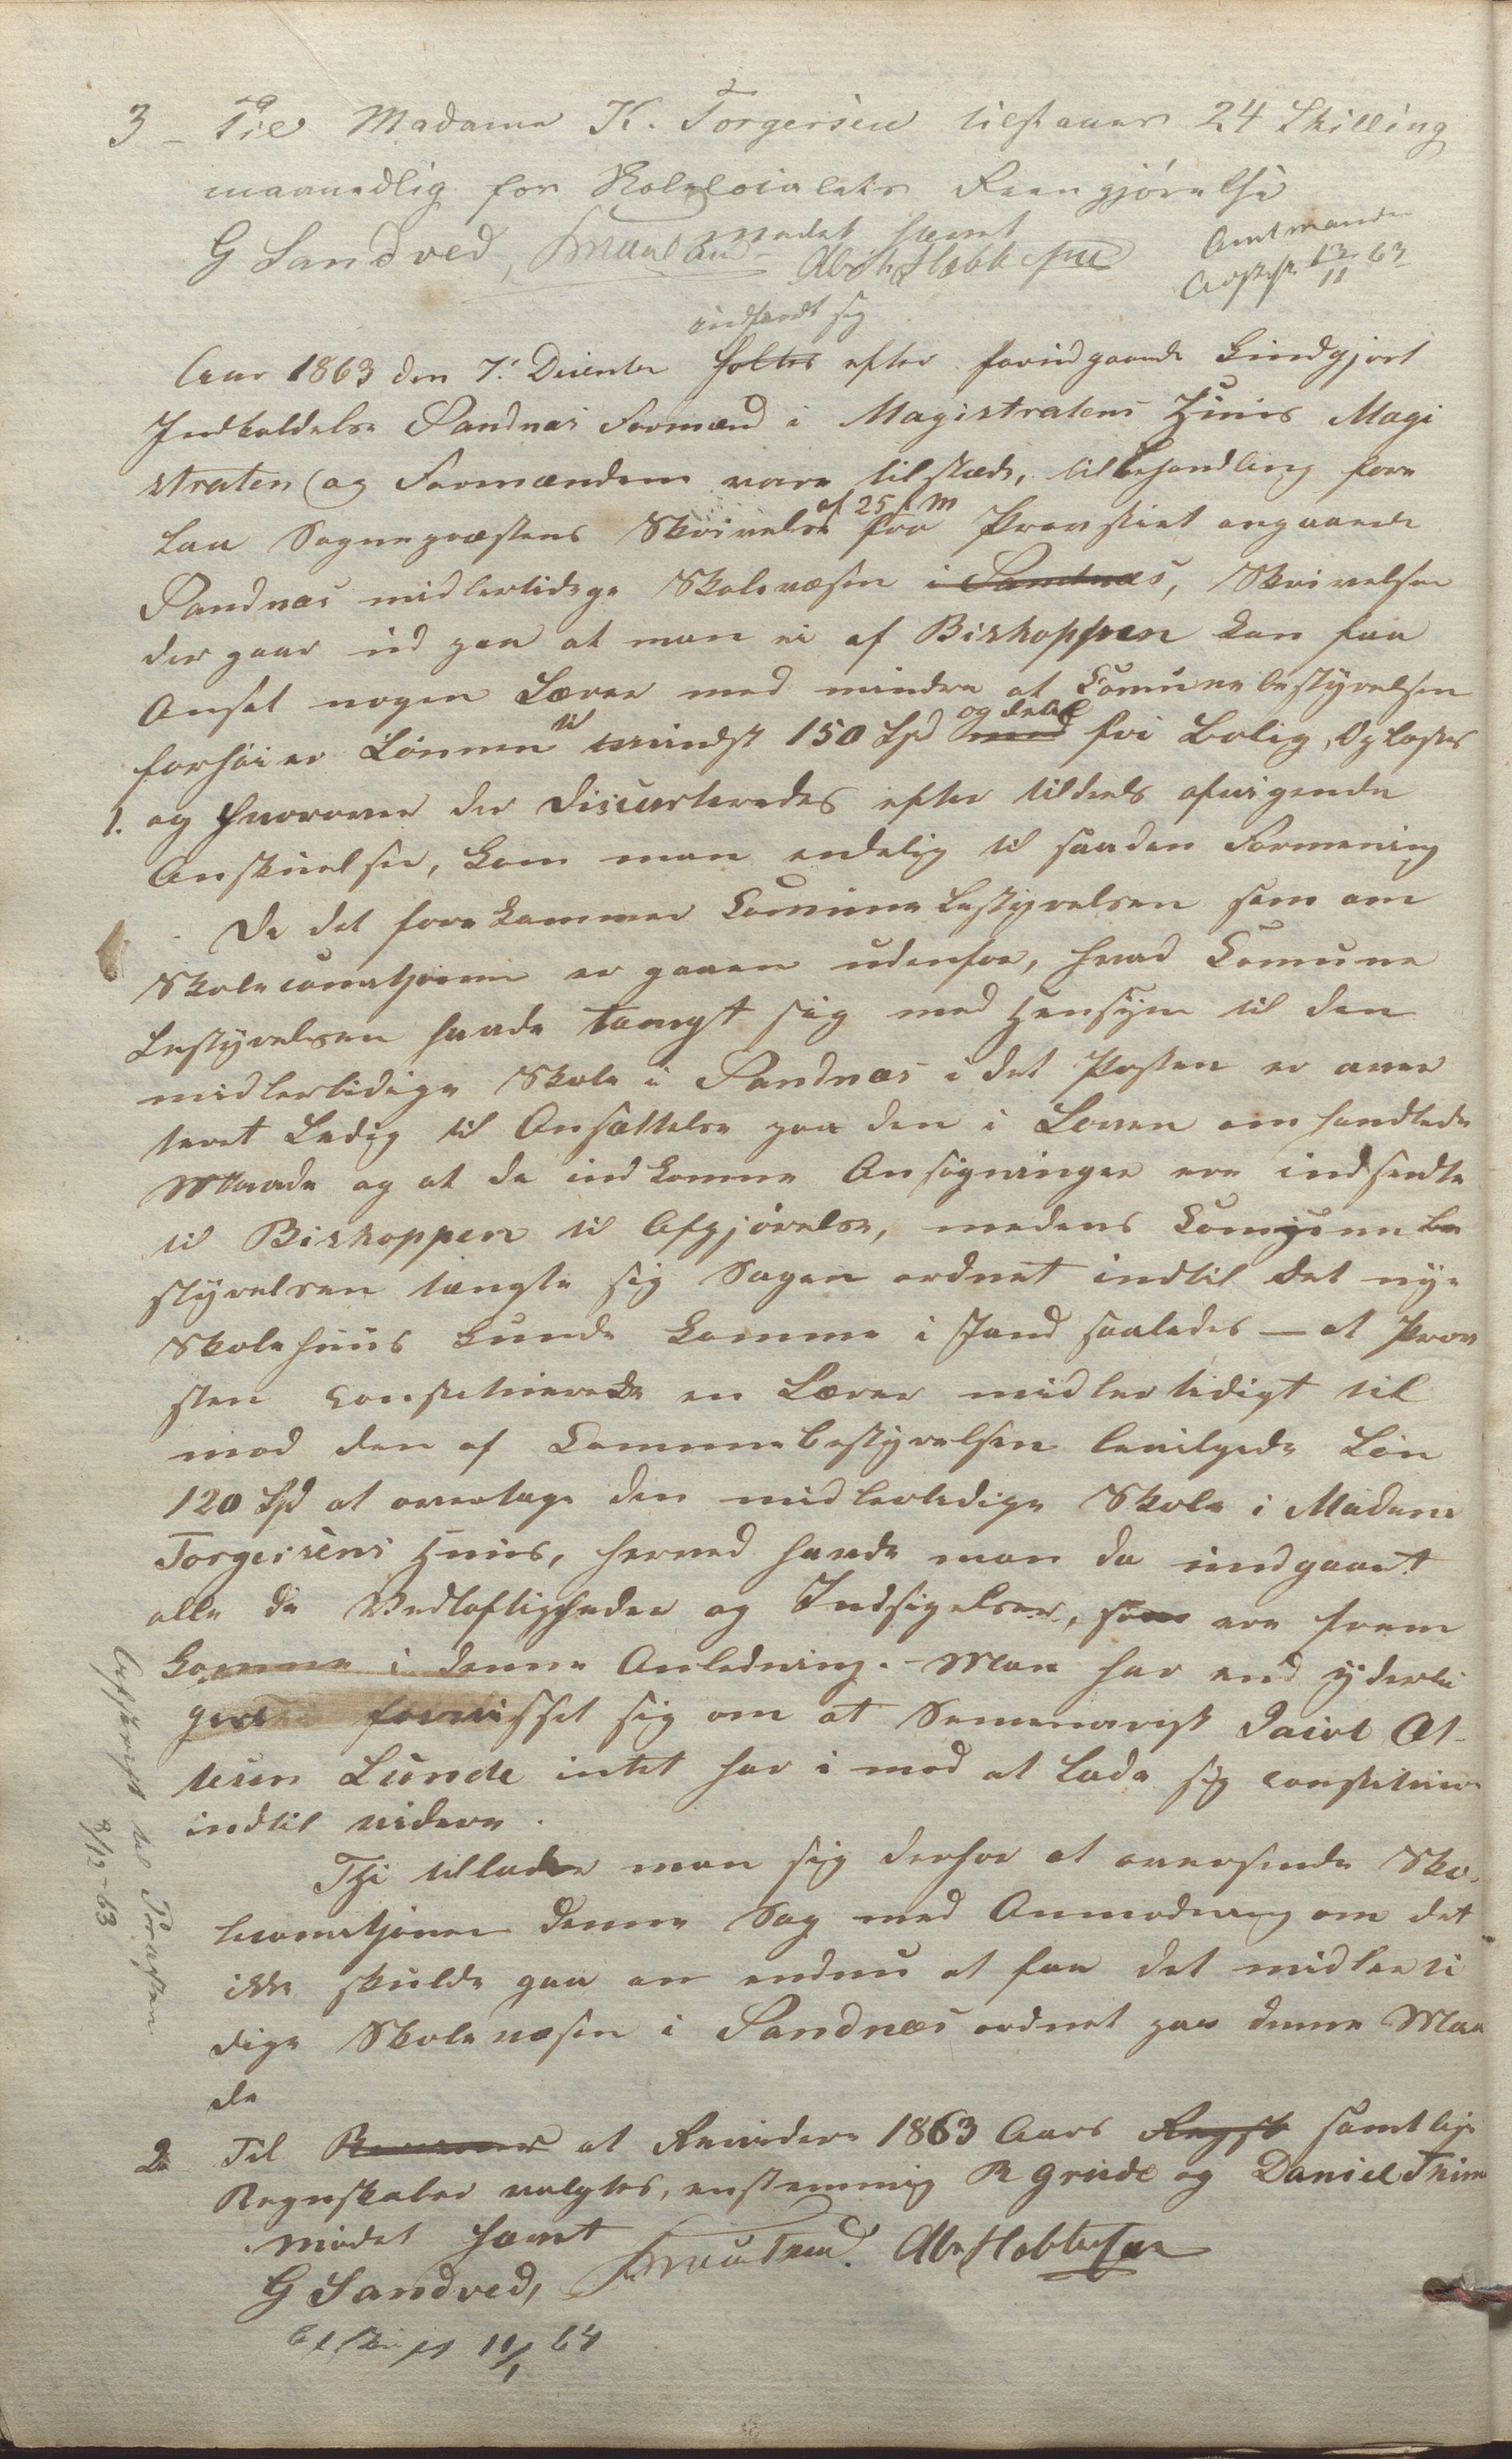 3 - Til Madame K. Torgersen tilstaaes 24 Skilling
maanedlig for Skolelocalets Reengjørelse
Mødet hævet
G Sandved,
Amtmanden
Afskr. 13/11 63
indfandt sig
Aar 1863 den 7. December holtes efter foregaaende kundgjort
Indkaldelse Sandnæs Formænd i Magistratens Huus Magi
straten og Formændene vare tilstæde, til Behandling fore
af 25 f M
laa Sognepræstens Skrivelse fra Provstiet angaaende
Sandnæs midlertidige Skolevæsen i Sandnæs, Skrivelsen
der gaar ud paa at man ei af Biskoppen kan faa
Ansat nogen Lærer med mindre at Comunebestyrelsen
til og deels
forhøier Lønnen mindst 150 Spd med fri Bolig, Oplæstes
1. og hvorover der discuteredes efter tildeels afvigende
Anskuelser, kom man endelig til saadan Formening
Da det forekommer Comunebestyrelsen som om
Skolecomisjonen er gaaen udenfor, hvad Comune
bestyrelsen havde tængt sig med Hensyn til den
midlertidige Skole i Sandnæs i det Posten er aver
teret Ledig til Ansættelse paa den i Loven omhandlede
Maade og at de indkomne Ansøgninger ere indsendte
til Biskoppen til Afgjørelse, medens Comunebe
styrelsen tængte sig Sagen ordnet indtil det nye
Skolehuus kunde komme i Stand saaledes — at Prov
sten constituerede en Lærer midlertidigt til
mod den af Comunebestyrelsen bevilgede Løn
120 Spd at overtage den midlertidige Skole i Madame
Torgersens Huus, herved havde man da undgaaet
alle de Vidtløftigheder og Indsigelser, som ere frem
komne i denne Anledning. Man har end yderli
gere forvisset sig om at Semenarist Jacob At-
lesen Lunde intet har i mod at lade sig constituere
indtil videre.
Thi tillader man sig derfor at oversende Sko-
lecomisjonen denne Sag med Anmodning om det
ikke skulde gaa an endnu at faa det midlerti
dige Skolevæsen i Sandnæs ordnet paa denne Maa
de
Afskrift til Provsten
8/12-63
2 Til at Revidere 1863 Aars Regsk samtlige
Regnskaber valgtes, enstemmig R Grude og Daniel
Mødet hævet
G Sandved,
Afskrift 11/1 64